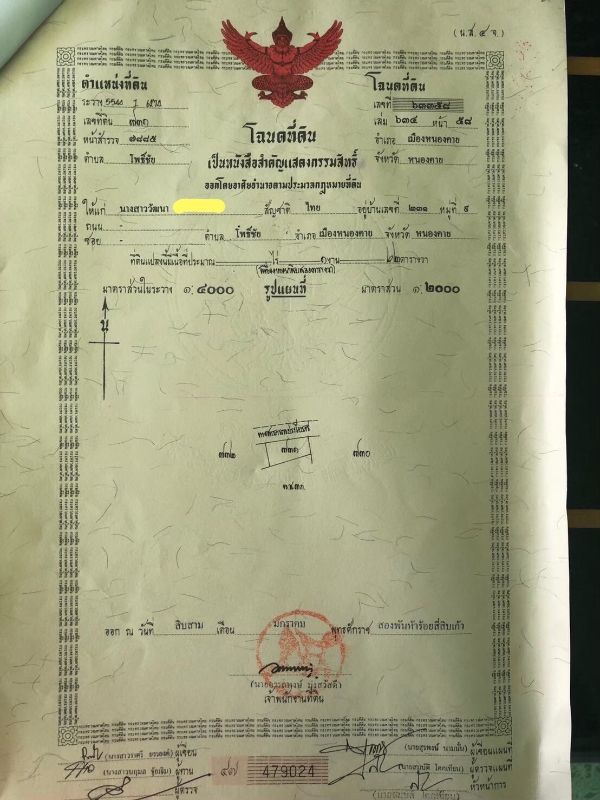 (น.ส. ๔ จ.)
ตำแหน่งที่ดิน
ระวาง
เลขที่ดิน ๗๓๑
หน้าสำรวจ ๗๘๘๕
ตำบล โพธิ์ชัย
โฉนดที่ดิน
เลขที่ ๖๓๓๕๘
เล่ม ๖๓๔ หน้า ๕๘
อำเภอ เมืองหนองคาย
จังหวัด หนองคาย
โฉนดที่ดิน
เป็นหนังสือสำคัญแสดงกรรมสิทธิ์
ออกโดยอาศัยอำนาจตามประมวลกฎหมายที่ดิน
ให้แก่ นางสาววัฒนา สัญชาติ ไทย อยู่บ้านเลขที่ ๒๓๑ หมู่ที่ ๙
ถนน -
ซอย - ตำบล โพธิ์ชัย อำเภอ เมืองหนองคาย จังหวัด หนองคาย
ที่ดินแปลงนี้มีเนื้อที่ประมาณ - ไร่ ๑ งาน ตารางวา
มาตราส่วนในระวาง ๑:๔๐๐๐ รูปแผนที่ มาตราส่วน ๑:๒๐๐๐
น
๗๓๒ ๗๓๑ ๗๓๐
ออก ณ วันที่ สิบสาม เดือน มกราคม พุทธศักราช สองพันห้าร้อยสี่สิบเก้า
เจ้าพนักงานที่ดิน
ผู้เขียน
ผู้ทาน
ผู้ตรวจ
๔๗ 479024
ผู้เขียนแผนที่
ผู้ตรวจแผนที่
หัวหน้าการ